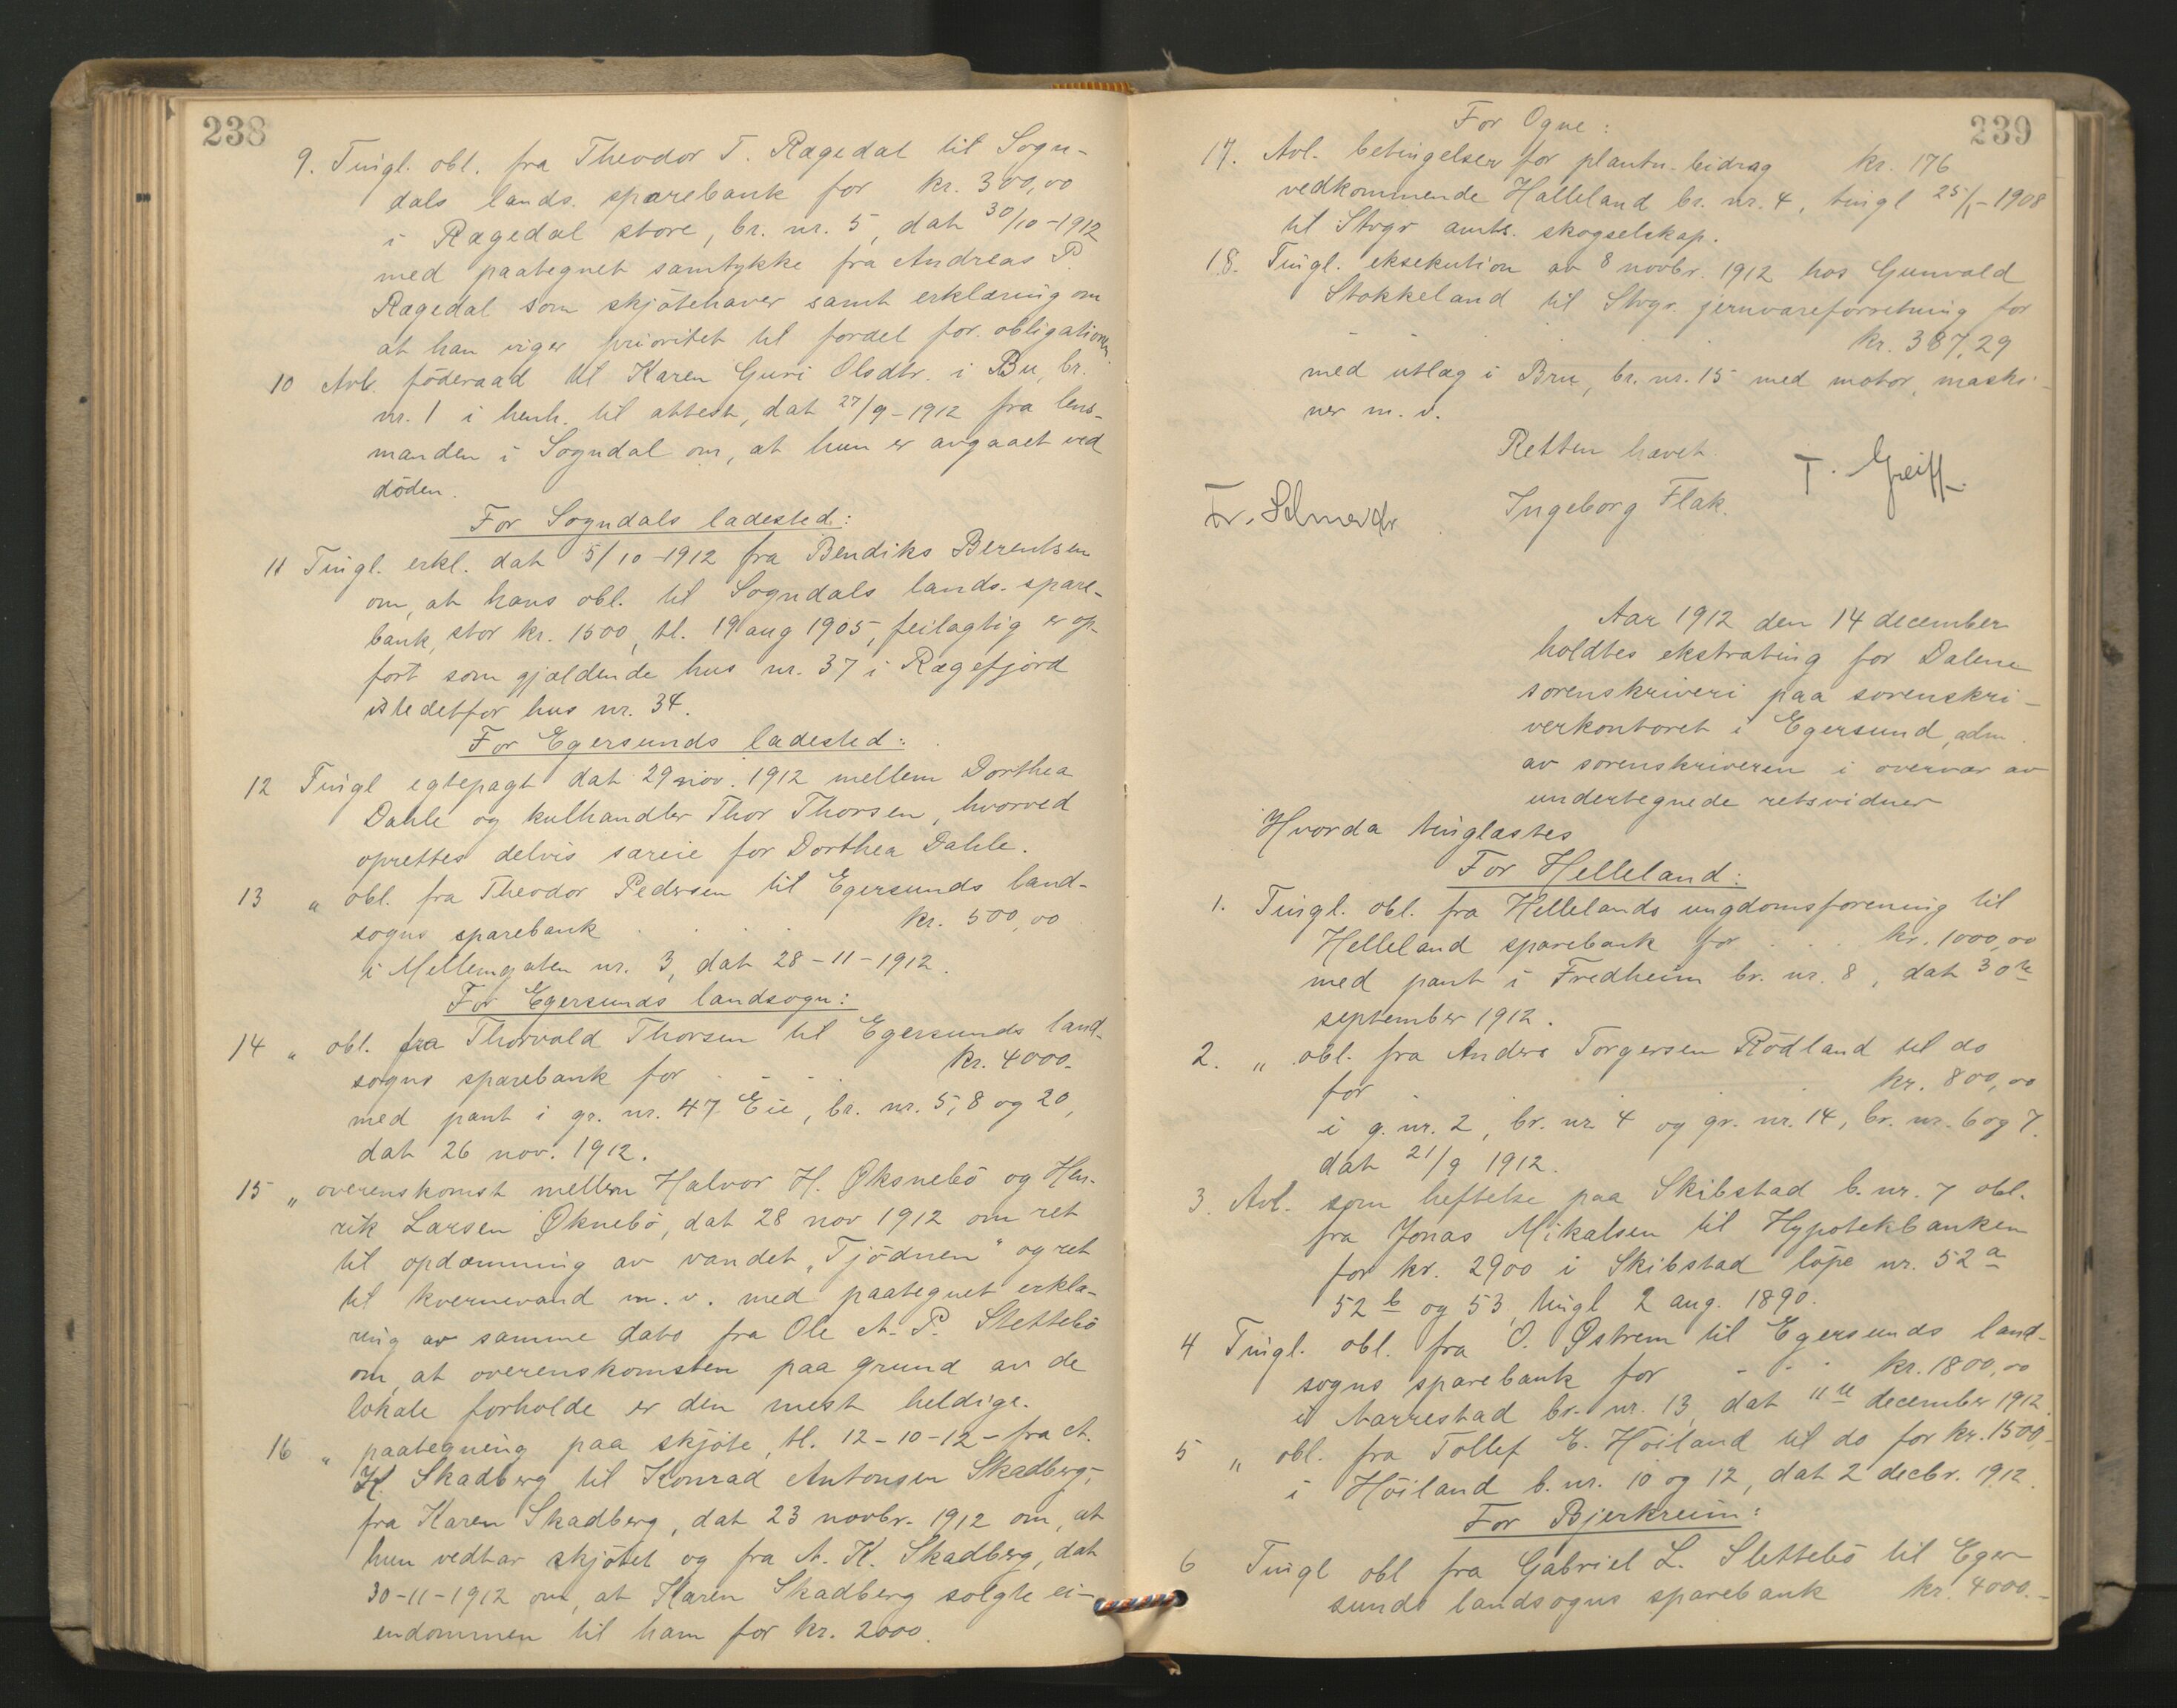 238
9. Tingl. obl. fra Theodor T. Rægedal til Sogn-
dals lands. sparebank for kr. 300,00
i Rægedal store, br. nr. 5, dat 30/10-1912
med paategnet samtykke fra Andreas P.
Rægedal som skjötehaver samt erklæring om
at han viger prioritet til fordel for obligationen.
10 Avl. föderaad til Karen Guri Olsdtr. i Bu, br.
nr. 1 i henh. til attest, dat 27/9-1912 fra lens-
manden i Sogndal om, at hun er avgaaet ved
döden.
For Sogndals ladested:
11 Tingl. erkl. dat 5/10-1912 fra Bendiks Berentsen
om, at hans obl. til Sogndals lands. spare-
bank, stor kr. 1500, tl. 19 aug 1905, feilagtig er op-
fört som gjældende hus nr. 37 i Rægefjord
istedetfor hus nr. 34.
For Egersunds ladested:
12 Tingl egtepagt dat 29 nov. 1912 mellem Dorthea
Dahle og kulhandler Thor Thorsen, hvorved
oprettes delvis særeie for Dorthea Dahle.
13 " obl. fra Theodor Pedersen til Egersunds land-
sogns sparebank . . . kr. 500,00
i Mellemgaten nr. 3, dat 28-11-1912.
For Egersunds landsogn:
14 " obl. fra Thorvald Thorsen til Egersunds land-
sogns sparebank for . - - . kr. 4000.
med pant i gr. nr. 47 Eie, br. nr. 5, 8 og 20,
dat 26 nov. 1912.
15 " overenskomst mellem Halvor H. Øksnebö og Hen-
rik Larsen Øknebö, dat 28 nov 1912 om ret
til opdæmning av vandet "Tjödnen" og ret
til kvernevand m. v. med paategnet erklæ-
ring av samme dato fra Ole A. P. Slettebö
om, at overenskomsten paa grund av de
lokale forholde er den mest heldige.
16 " paategning paa skjöte, tl. 12-10-12 - fra A.
K. Skadberg til Konrad Antonsen Skadberg,
fra Karen Skadberg, dat 23 novbr. 1912 om, at
hun vedtar skjötet og fra A. K. Skadberg, dat
30-11-1912 om, at Karen Skadberg solgte ei-
endommen til ham for kr. 2000.
239
For Ogne:
17. Avl. betingelser for plantn. bidrag kr. 176
vedkommende Halleland br. nr. 4, tingl 25/1-1908
til Stvgr amts. skogselskap.
18. Tingl. eksekution av 8 novbr. 1912 hos Gunvald
Stokkeland til Stvgr. jernvareforretning for
- - . . . kr. 387,29
med utlæg i Bru, br. nr. 15 med motor, maski-
ner m. v.
Retten hævet.
T. Greiff.
Ingeborg Flak.
Aar 1912 den 14 december
holdtes ekstrating for Dalene
sorenskriveri paa sorenskri-
verkontoret i Egersund, adm.
av sorenskriveren i overvær av
undertegnede retsvidner
Hvorda tinglæstes
For Helleland:
1. Tingl. obl. fra Hellelands ungdomsforening til
Helleland sparebank for . . . kr. 1000,00
med pant i Fredheim br. nr. 8, dat 30te
september 1912.
2. " obl. fra Anders Torgersen Rödland til do
for . . . kr. 800,00
i g. nr. 2, br. nr. 4 og gr. nr. 14, br. nr. 6 og 7.
dat 21/9 1912.
3. Avl. som heftelse paa Skibstad b. nr. 7 obl.
fra Jonas Mikalsen til Hypotekbanken
for kr. 2900 i Skibstad löpe nr. 52a
52b og 53, tingl 2 aug. 1890.
4 Tingl. obl. fra O. Østrem til Egersunds land-
sogns sparebank for - - - kr. 1800,00
i Aarrestad br. nr. 13, dat 11te december 1912.
5 " obl. fra Tollef E. Höiland til do for kr. 1500,-
i Höiland b. nr. 10 og 12, dat 2 decbr. 1912.
For Bjerkreim:
6 Tingl obl fra Gabriel L. Slettebö til Eger-
sunds landsogns sparebank kr. 4000.-